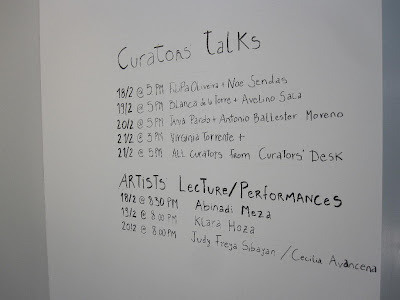 Curators talks
18/2 @ 5 PM Filipa Oliveira + Noe Sendas
19/2 @ 5 PM Blanca de la Torre + Avelino Sala
20/2 @ 5 PM Tania Pardo + Antonio Ballester Moreno
21/2 @ 5 PM Virginia Torrente +
21/2 @ 5 PM ALL Curators from Curators' Desk
Artists Lecture/Performances
18/2 @ 8:30 PM Abinadi Meza
19/2 @ 8:00 PM Klara Hoza
20/2 @ 8:00 PM Judy Freya Sibayan / Cecilia Avancena